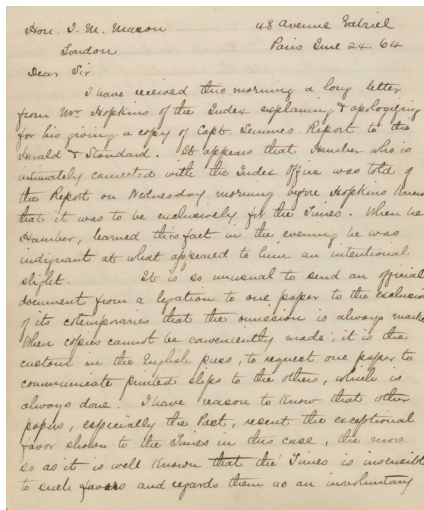 Hon. J. M. Mason
48 Avenue Gabriel
London
Paris June 24. 64
Dear Sir
I have received this morning a long letter
from Mr. Hopkins of the Index explaining & apologizing
for his giving a copy of Capt. Semmes Report to the
Herald & Standard. It appears that Hamber who is
intimately connected with the Index Office was told of
the Report on Wednesday morning before Hopkins knew
that it was to be exclusively for the Times. When he
Hamber, learned this fact in the evening he was
indignant at what appeared to him an intentional
slight. It is so unusual to send an official
document from a legation to one paper to the exclusion
of its cotemporaries that the omission is always marked
When copies cannot be conveniently made, it is the
custom in the English press, to request one paper to
communicate printed slips to the others, which is
always done. I have reason to know that other
papers, especially the Post, resent the exceptional
favor shown to the Times in this case, the more
so as it is well known that the Times is insensible
to such favors and regards them as an involuntary